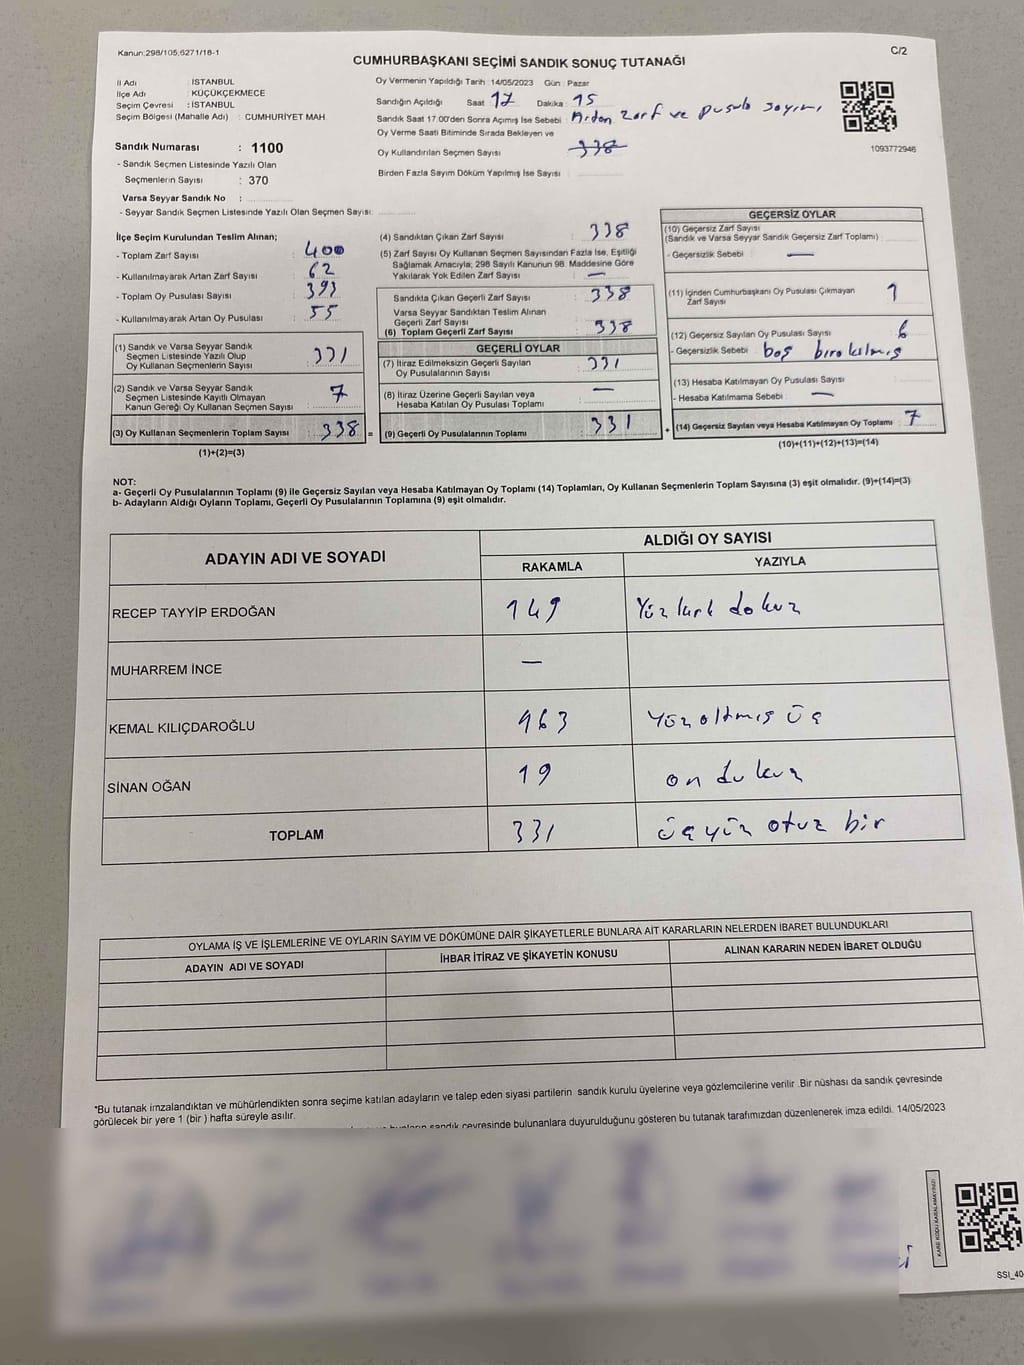 Kanun:298/105,6271/16-1
C/2
CUMHURBAŞKANI SEÇİMİ SANDIK SONUÇ TUTANAĞI
İl Adı : İSTANBUL
İlçe Adı : KÜÇÜKÇEKMECE
Seçim Çevresi : İSTANBUL
Seçim Bölgesi (Mahalle Adı) : CUMHURİYET MAH.
Sandık Numarası : 1100
- Sandık Seçmen Listesinde Yazılı Olan
Seçmenlerin Sayısı : 370
Varsa Seyyar Sandık No :
- Seyyar Sandık Seçmen Listesinde Yazılı Olan Seçmen Sayısı:
Oy Vermenin Yapıldığı Tarih : 14/05/2023 Gün : Pazar
Sandığın Açıldığı Saat 17 Dakika : 15
Sandık Saat 17.00'den Sonra Açılmış İse Sebebi : zarf ve pusula sayımı
Oy Verme Saati Bitiminde Sırada Bekleyen ve
Oy Kullandırılan Seçmen Sayısı : 338
Birden Fazla Sayım Döküm Yapılmış İse Sayısı :
1093772946
İlçe Seçim Kurulundan Teslim Alınan;
- Toplam Zarf Sayısı : 400
- Kullanılmayarak Artan Zarf Sayısı : 62
- Toplam Oy Pusulası Sayısı : 393
- Kullanılmayarak Artan Oy Pusulası : 55
(1) Sandık ve Varsa Seyyar Sandık
Seçmen Listesinde Yazılı Olup
Oy Kullanan Seçmenlerin Sayısı : 331
(2) Sandık ve Varsa Seyyar Sandık
Seçmen Listesinde Kayıtlı Olmayan
Kanun Gereği Oy Kullanan Seçmen Sayısı : 7
(3) Oy Kullanan Seçmenlerin Toplam Sayısı : 338
(1)+(2)=(3)
(4) Sandıktan Çıkan Zarf Sayısı : 338
(5) Zarf Sayısı Oy Kullanan Seçmen Sayısından Fazla İse, Eşitliği
Sağlamak Amacıyla; 298 Sayılı Kanunun 98. Maddesine Göre
Yakılarak Yok Edilen Zarf Sayısı : —
Sandıkta Çıkan Geçerli Zarf Sayısı : 338
Varsa Seyyar Sandıktan Teslim Alınan
Geçerli Zarf Sayısı
(6) Toplam Geçerli Zarf Sayısı : 338
GEÇERLİ OYLAR
(7) İtiraz Edilmeksizin Geçerli Sayılan
Oy Pusulalarının Sayısı : 331
(8) İtiraz Üzerine Geçerli Sayılan veya
Hesaba Katılan Oy Pusulası Toplamı : —
= (9) Geçerli Oy Pusulalarının Toplamı : 331
GEÇERSİZ OYLAR
(10) Geçersiz Zarf Sayısı
(Sandık ve Varsa Seyyar Sandık Geçersiz Zarf Toplamı)
- Geçersizlik Sebebi : —
(11) İçinden Cumhurbaşkanı Oy Pusulası Çıkmayan
Zarf Sayısı 1
(12) Geçersiz Sayılan Oy Pusulası Sayısı : 6
- Geçersizlik Sebebi : boş bırakılmış
(13) Hesaba Katılmayan Oy Pusulası Sayısı
- Hesaba Katılmama Sebebi : —
+ (14) Geçersiz Sayılan veya Hesaba Katılmayan Oy Toplamı : 7
(10)+(11)+(12)+(13)=(14)
NOT:
a- Geçerli Oy Pusulalarının Toplamı (9) ile Geçersiz Sayılan veya Hesaba Katılmayan Oy Toplamı (14) Toplamları, Oy Kullanan Seçmenlerin Toplam Sayısına (3) eşit olmalıdır. (9)+(14)=(3)
b- Adayların Aldığı Oyların Toplamı, Geçerli Oy Pusulalarının Toplamına (9) eşit olmalıdır.
ADAYIN ADI VE SOYADI
ALDIĞI OY SAYISI
RAKAMLA YAZIYLA
RECEP TAYYİP ERDOĞAN 149 Yüz kırk dokuz
MUHARREM İNCE —
KEMAL KILIÇDAROĞLU 163 Yüz altmış üç
SİNAN OĞAN 19 on dokuz
TOPLAM 331 üçyüz otuz bir
OYLAMA İŞ VE İŞLEMLERİNE VE OYLARIN SAYIM VE DÖKÜMÜNE DAİR ŞİKAYETLERLE BUNLARA AİT KARARLARIN NELERDEN İBARET BULUNDUKLARI
ADAYIN ADI VE SOYADI İHBAR İTİRAZ VE ŞİKAYETİN KONUSU ALINAN KARARIN NEDEN İBARET OLDUĞU
*Bu tutanak imzalandıktan ve mühürlendikten sonra seçime katılan adayların ve talep eden siyasi partilerin sandık kurulu üyelerine veya gözlemcilerine verilir .Bir nüshası da sandık çevresinde
görülecek bir yere 1 (bir ) hafta süreyle asılır.
sandık çevresinde bulunanlara duyurulduğunu gösteren bu tutanak tarafımızdan düzenlenerek imza edildi. 14/05/2023
KARE KODU KARALAMAYINIZ!
SSI_40